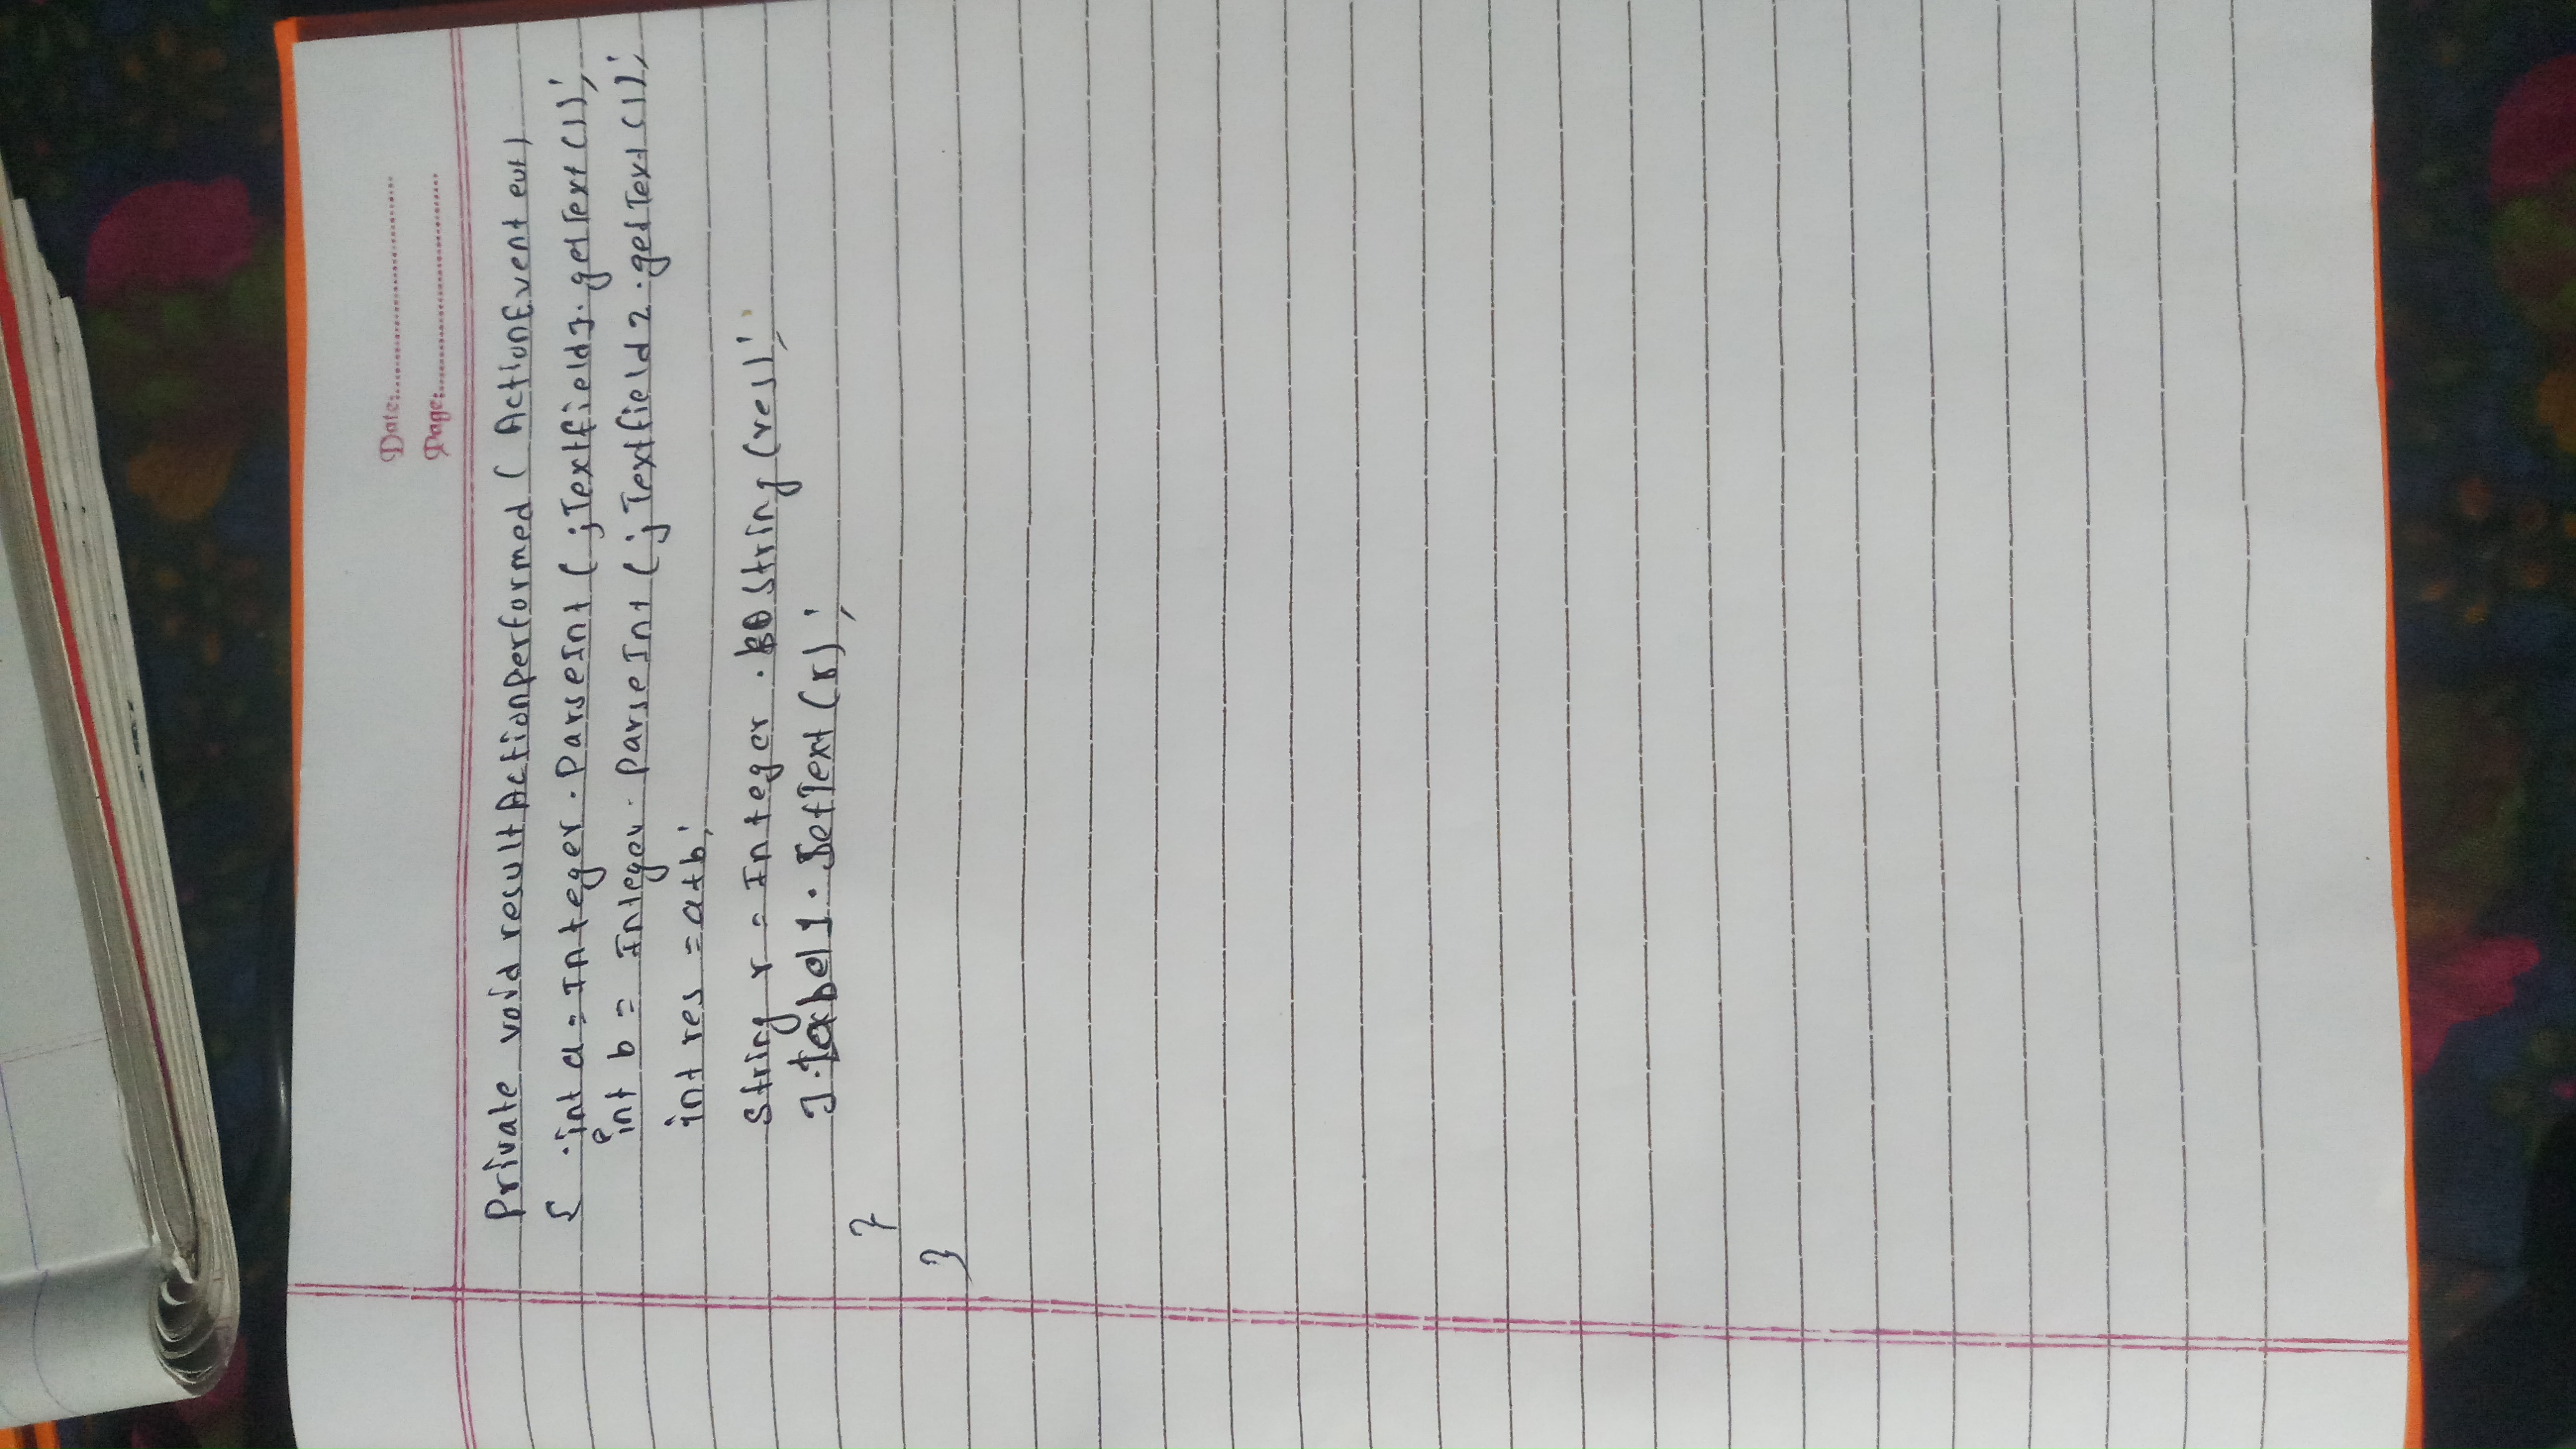 Date:
Page:
Private void resultActionPerformed ( ActionEvent evt)
{ int a = Integer . ParseInt ( jTextfield1. getText ());
int b = Integer . ParseInt ( jTextfield2 . getText ());
int res = a+b;
String r = Integer . to String (res);
J.label1. SetText (r) ;
}
}